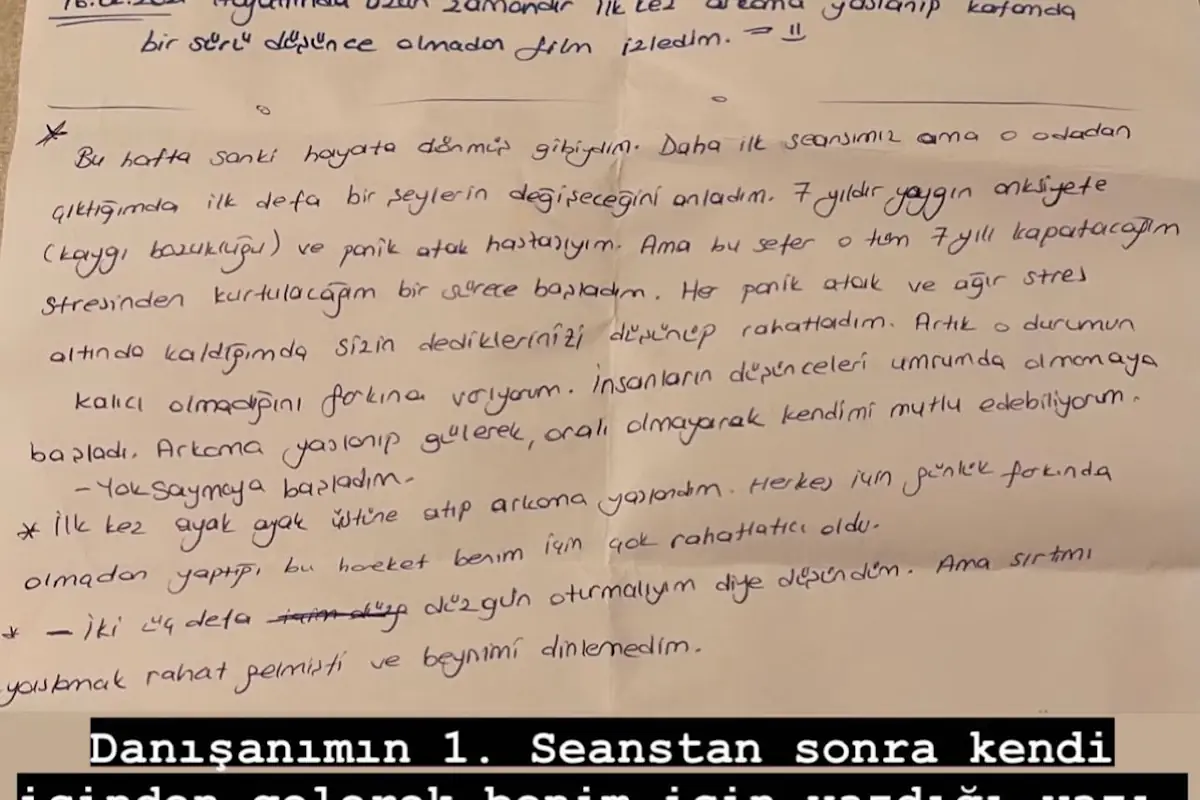 Hayatımda uzun zamandır ilk kez arkama yaslanıp kafamda
bir sürü düşünce olmadan film izledim. =
* Bu hafta sanki hayata dönmüş gibiydim. Daha ilk seansımız ama o odadan
çıktığımda ilk defa bir şeylerin değişeceğini anladım. 7 yıldır yaygın anksiyete
(kaygı bozukluğu) ve panik atak hastasıyım. Ama bu sefer o tüm 7 yılı kapatacağım
stresinden kurtulacağım bir sürece başladım. Her panik atak ve ağır stres
altında kaldığımda sizin dediklerinizi düşünüp rahatladım. Artık o durumun
kalıcı olmadığını farkına varıyorum. İnsanların düşünceleri umrumda olmamaya
başladı. Arkama yaslanıp gülerek, oralı olmayarak kendimi mutlu edebiliyorum.
- Yok saymaya başladım.
* İlk kez ayak ayak üstüne atıp arkama yaslandım. Herkes için günlük farkında
olmadan yaptığı bu hareket benim için çok rahatlatıcı oldu.
* - İki üç defa düzgün oturmalıyım diye düşündüm. Ama sırtımı
yaslamak rahat gelmişti ve beynimi dinlemedim.
Danışanımın 1. Seanstan sonra kendi
içinden gelerek benim için yazdığı yazı.